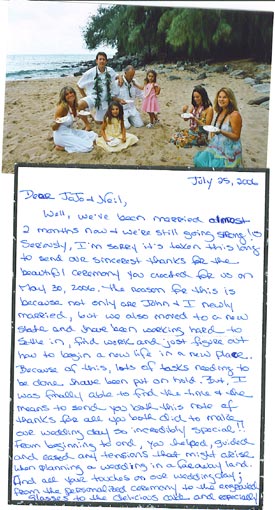 July 25, 2006
Dear JoJo & Neil,
Well, we've been married almost
2 months now & we're still going strong!
Seriously, I'm sorry it's taken this long
to send our sincerest thanks for the
beautiful ceremony you created for us on
May 30, 2006. The reason for this is
because not only are John & I newly
married, but we also moved to a new
state and have been working hard to
settle in, find work and just figure out
how to begin a new life in a new place.
Because of this, lots of tasks needing to
be done have been put on hold. But, I
was finally able to find the time & the
means to send you both this note of
thanks for all you both did to make
our wedding day so incredibly special!!
From beginning to end, you helped, guided
and eased any tensions that might arise
when planning a wedding in a faraway land.
And all your touches on our wedding day;
from the personalized ceremony to the engraved
glasses to the delicious cake and especially